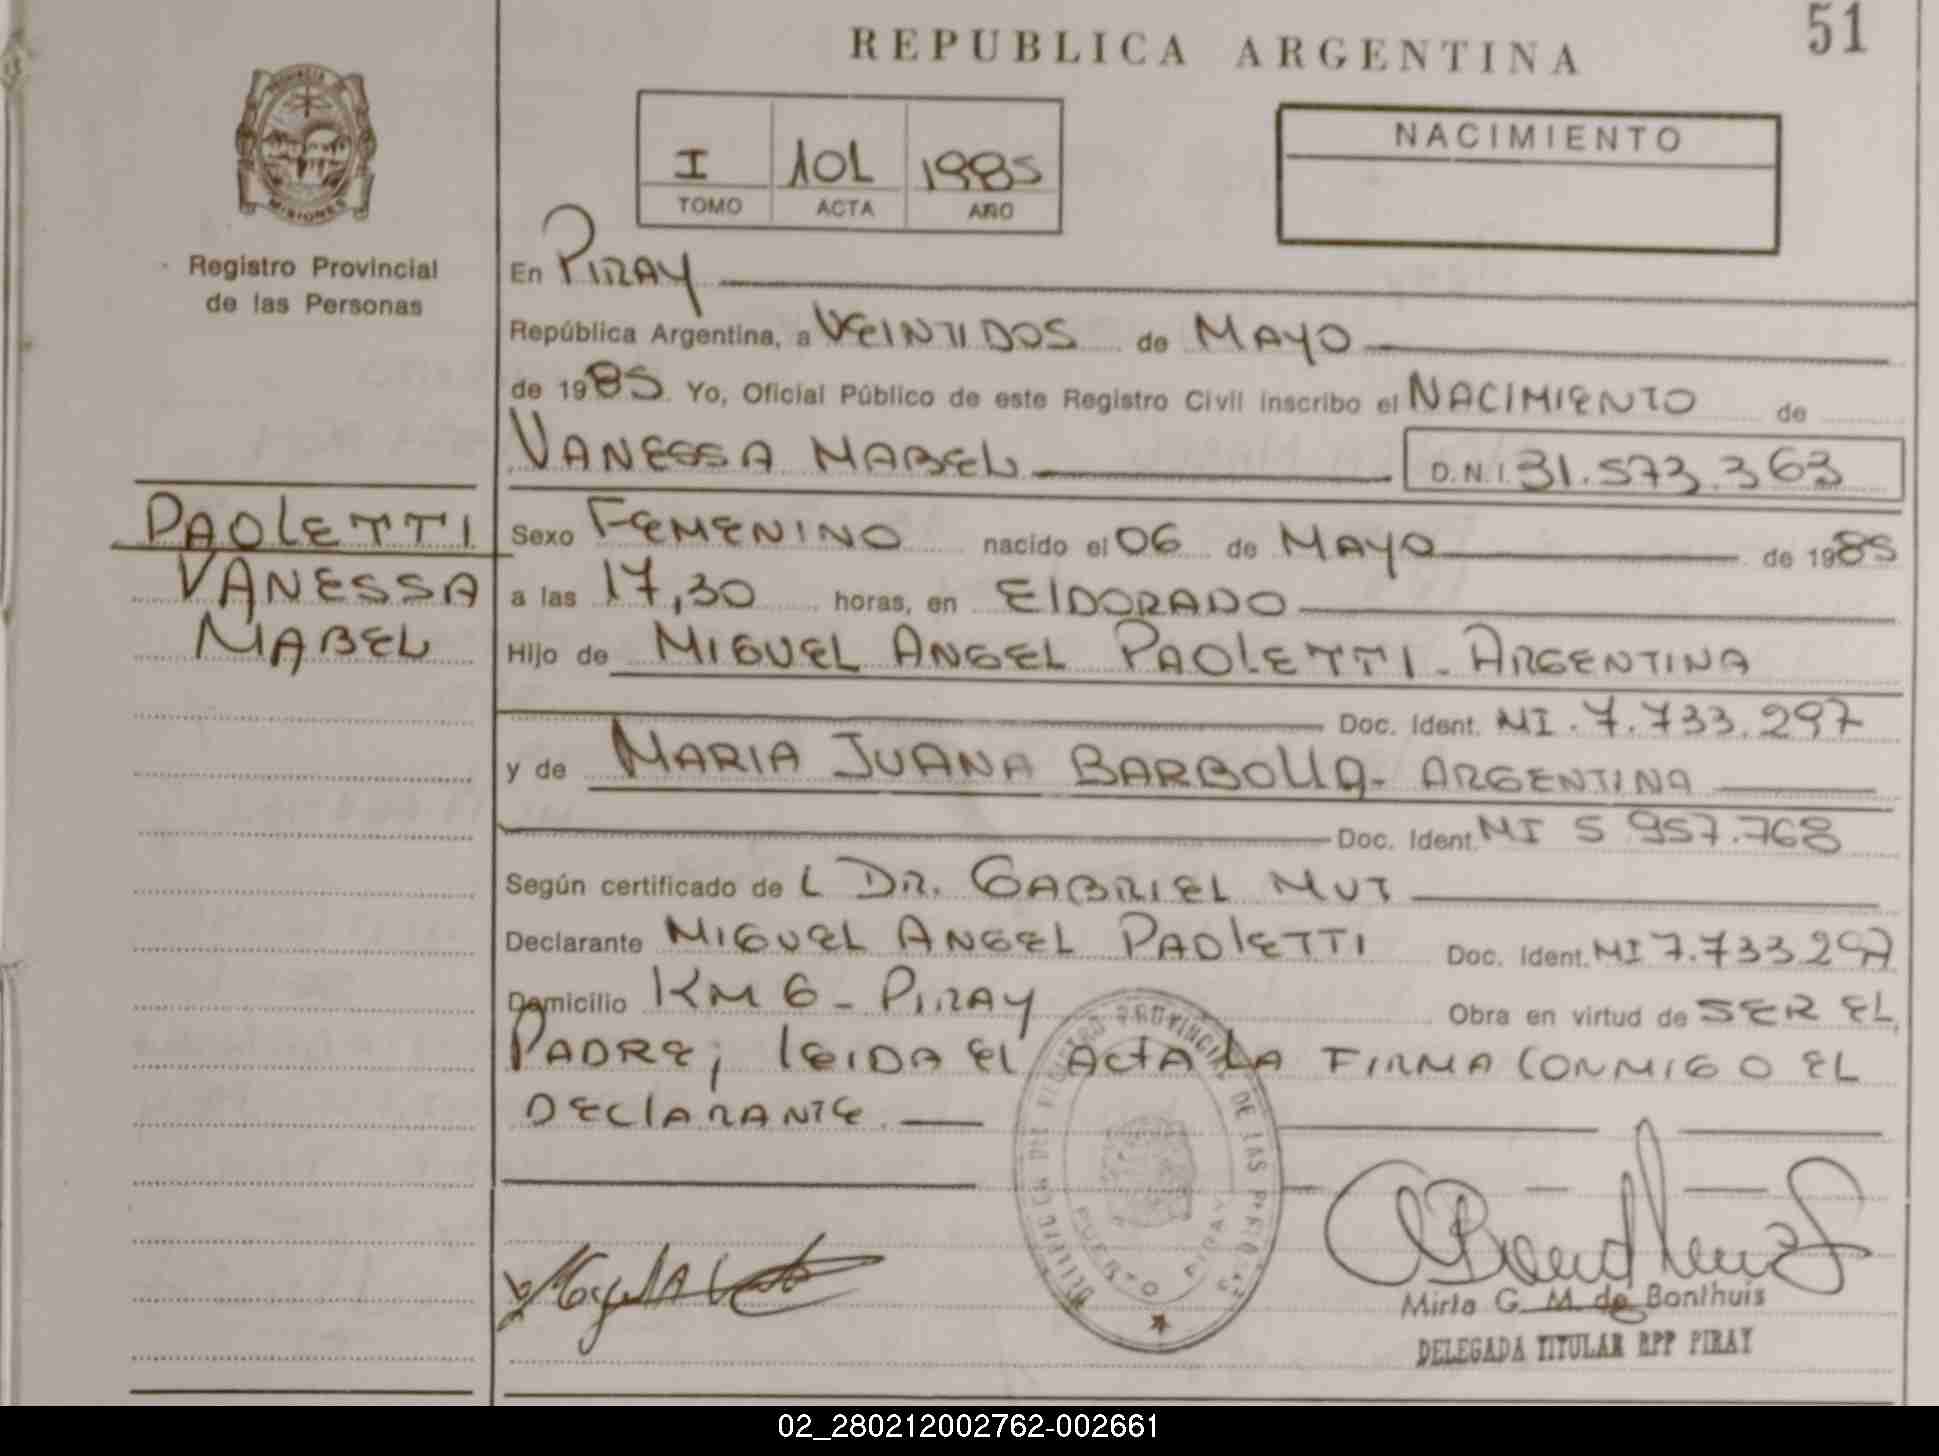 51
REPUBLICA ARGENTINA
PROVINCIA
MISIONES
Registro Provincial
de las Personas
I 101 1985
TOMO ACTA AÑO
NACIMIENTO
En PIRAY
República Argentina, a VEINTIDOS de MAYO
de 1985. Yo, Oficial Público de este Registro Civil inscribo el NACIMIENTO de
VANESSA MABEL D.N.I. 31.573.363
PAOLETTI
VANESSA
MABEL
Sexo FEMENINO nacido el 06 de MAYO de 1985
a las 17,30 horas, en ElDORADO
Hijo de MIGUEL ANGEL PAOLETTI - ARGENTINA
Doc. Ident. MI. 7.733.297
y de MARIA JUANA BARBOLLA - ARGENTINA
Doc. Ident. MI 5 957.768
Según certificado de L DR. GABRIEL MUT
Declarante MIGUEL ANGEL PAOLETTI Doc. Ident. MI 7.733297
Domicilio KM 6 - PIRAY Obra en virtud de SER EL
PADRE; LEIDA EL ACTA LA FIRMA CONMIGO EL
DECLARANTE.
REGISTRO PROVINCIAL DE LAS PERSONAS
PUERTO PIRAY
Mirta G. M. de Bonthuis
DELEGADA TITULAR RPP PIRAY
02_280212002762-002661